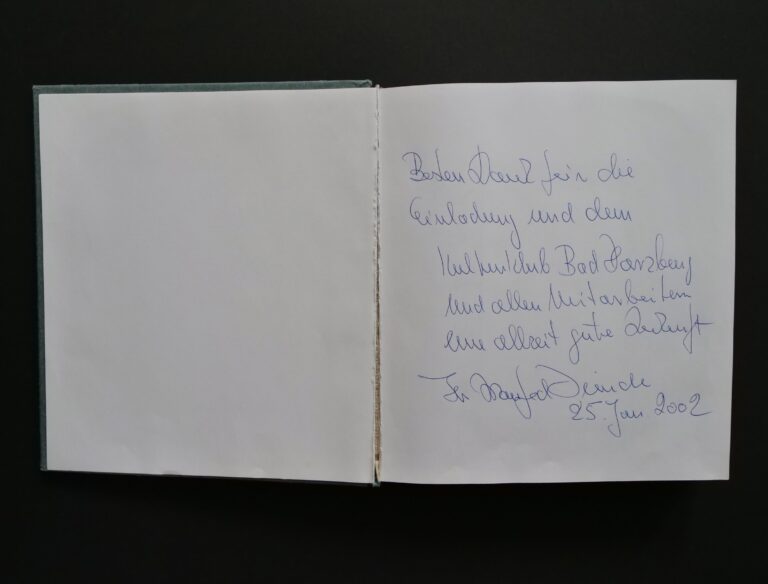 Besten Dank für die
Einladung und dem
Kulturklub Bad Harzburg
und allen Mitarbeitern
eine allzeit gute Zukunft
Ihr Manfred
25. Jan. 2002